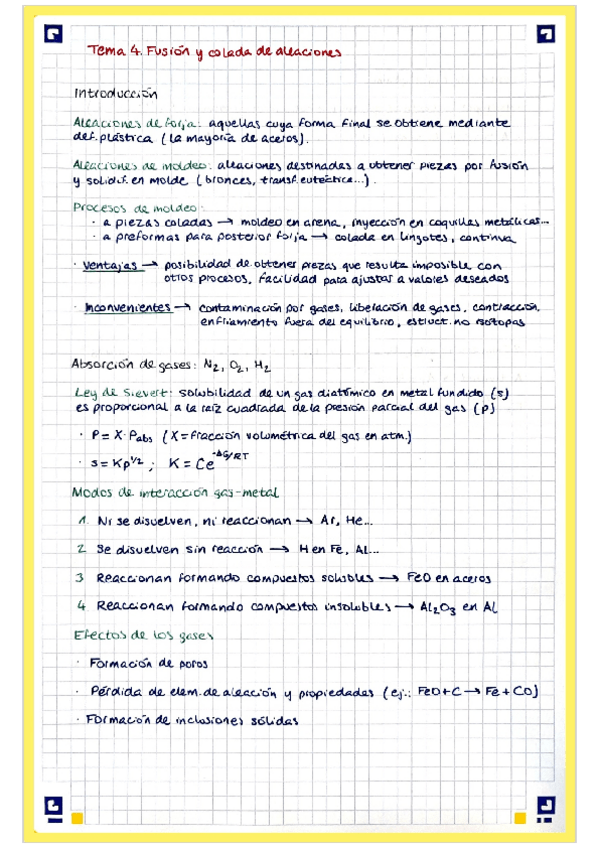 Tema 4. Fusión y colada de aleaciones
Introducción
Aleaciones de forja: aquellas cuya forma final se obtiene mediante
def. plástica (la mayoría de aceros).
Aleaciones de moldeo: aleaciones destinadas a obtener piezas por fusión
y solidif. en molde (bronces, transf. eutéctica...).
Procesos de moldeo:
· a piezas coladas → moldeo en arena, inyección en coquillas metálicas...
· a preformas para posterior forja → colada en lingotes, continua
· Ventajas → posibilidad de obtener piezas que resulta imposible con
otros procesos, facilidad para ajustar a valores deseados
· Inconvenientes → contaminación por gases, liberación de gases, contracción,
enfriamiento fuera del equilibrio, estruct. no isótopas
Absorción de gases: N₂, O₂, H₂
Ley de Sievert: solubilidad de un gas diatómico en metal fundido (s)
es proporcional a la raíz cuadrada de la presión parcial del gas (p)
· P = X · Pabs (X = fracción volumétrica del gas en atm.)
· s = Kp^1/2 ; K = Ce^-ΔG/RT
Modos de interacción gas-metal
1. Ni se disuelven, ni reaccionan → Ar, He...
2 Se disuelven sin reacción → H en Fe, Al...
3 Reaccionan formando compuestos solubles → FeO en aceros
4 Reaccionan formando compuestos insolubles → Al₂O₃ en Al
Efectos de los gases
· Formación de poros
· Pérdida de elem. de aleación y propiedades (ej.: FeO + C → Fe + CO)
· Formación de inclusiones sólidas